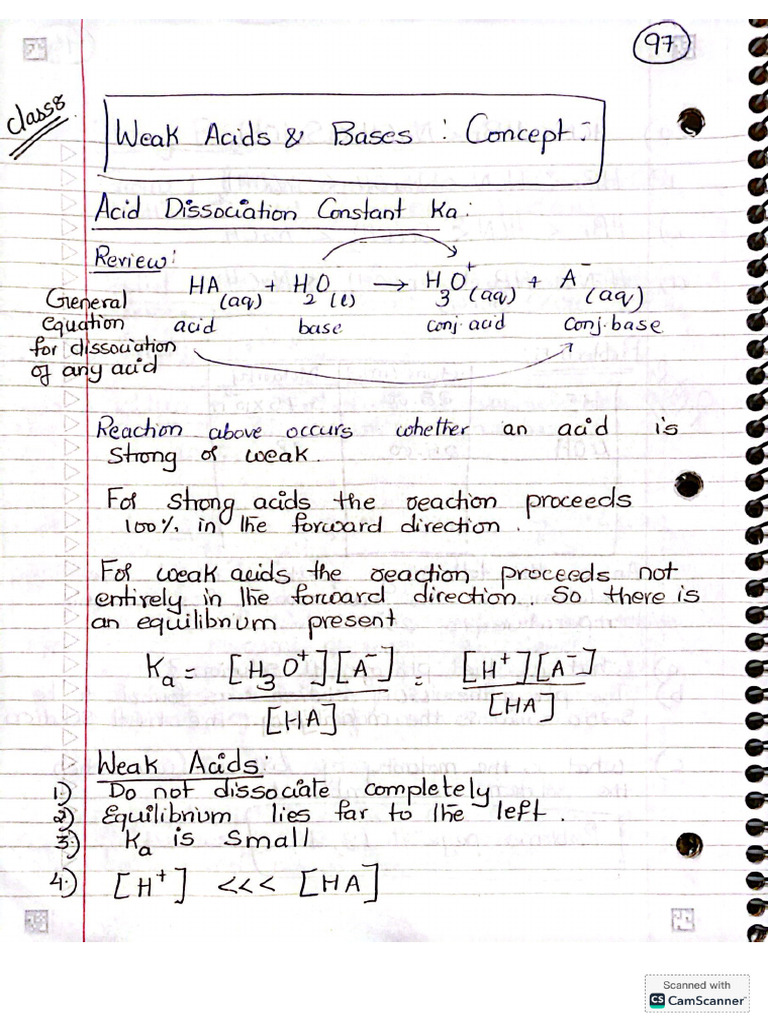 97
Class8
Weak Acids & Bases : Concept :
Acid Dissociation Constant Ka :
Review :
HA (aq) + H2O (l) → H3O+ (aq) + A- (aq)
acid base conj. acid conj. base
General
equation
for dissociation
of any acid
Reaction above occurs whether an acid is
strong or weak.
For strong acids the reaction proceeds
100% in the forward direction.
For weak acids the reaction proceeds not
entirely in the forward direction. So there is
an equilibrium present
Ka = [H3O+][A-] / [HA] = [H+][A-] / [HA]
Weak Acids:
1) Do not dissociate completely
2) Equilibrium lies far to the left.
3.) Ka is small
4.) [H+] <<< [HA]
Scanned with
CS CamScanner